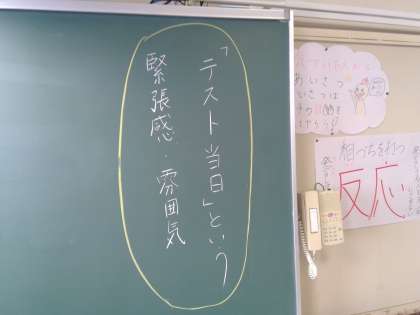 「テスト当日」という
緊張感・雰囲気
あいさつ
相づちを打つ
反応